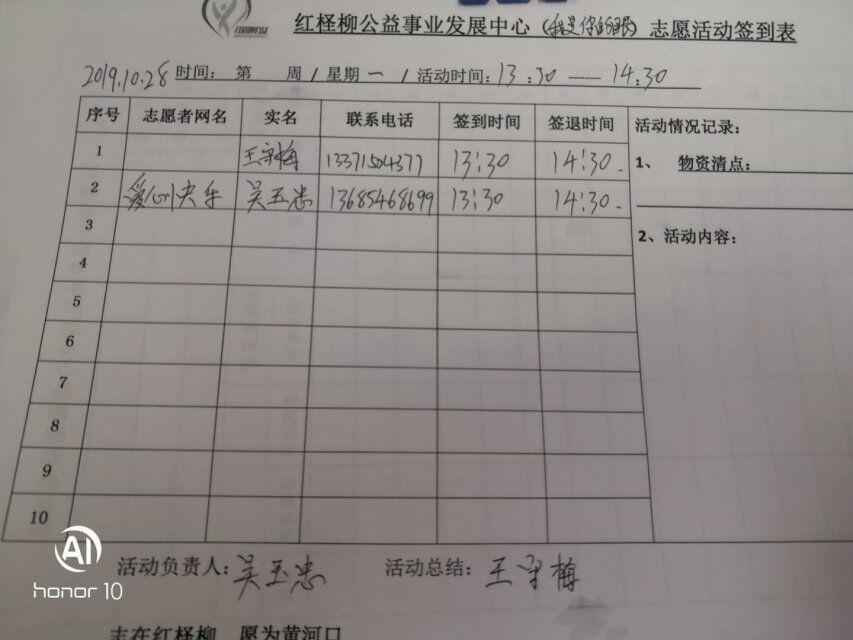 红柽柳公益事业发展中心（我是你的眼）志愿活动签到表
2019.10.28 时间：第 周 / 星期 一 / 活动时间：13:30 — 14:30
序号 志愿者网名 实名 联系电话 签到时间 签退时间 活动情况记录：
1 王守梅 13371504377 13:30 14:30. 1、 物资清点：
2 爱心快车 吴玉忠 13685468699 13:30 14:30.
3 2、活动内容：
4
5
6
7
8
9
10
活动负责人：吴玉忠 活动总结：王守梅
AI
honor 10
志在红柽柳 愿为黄河口